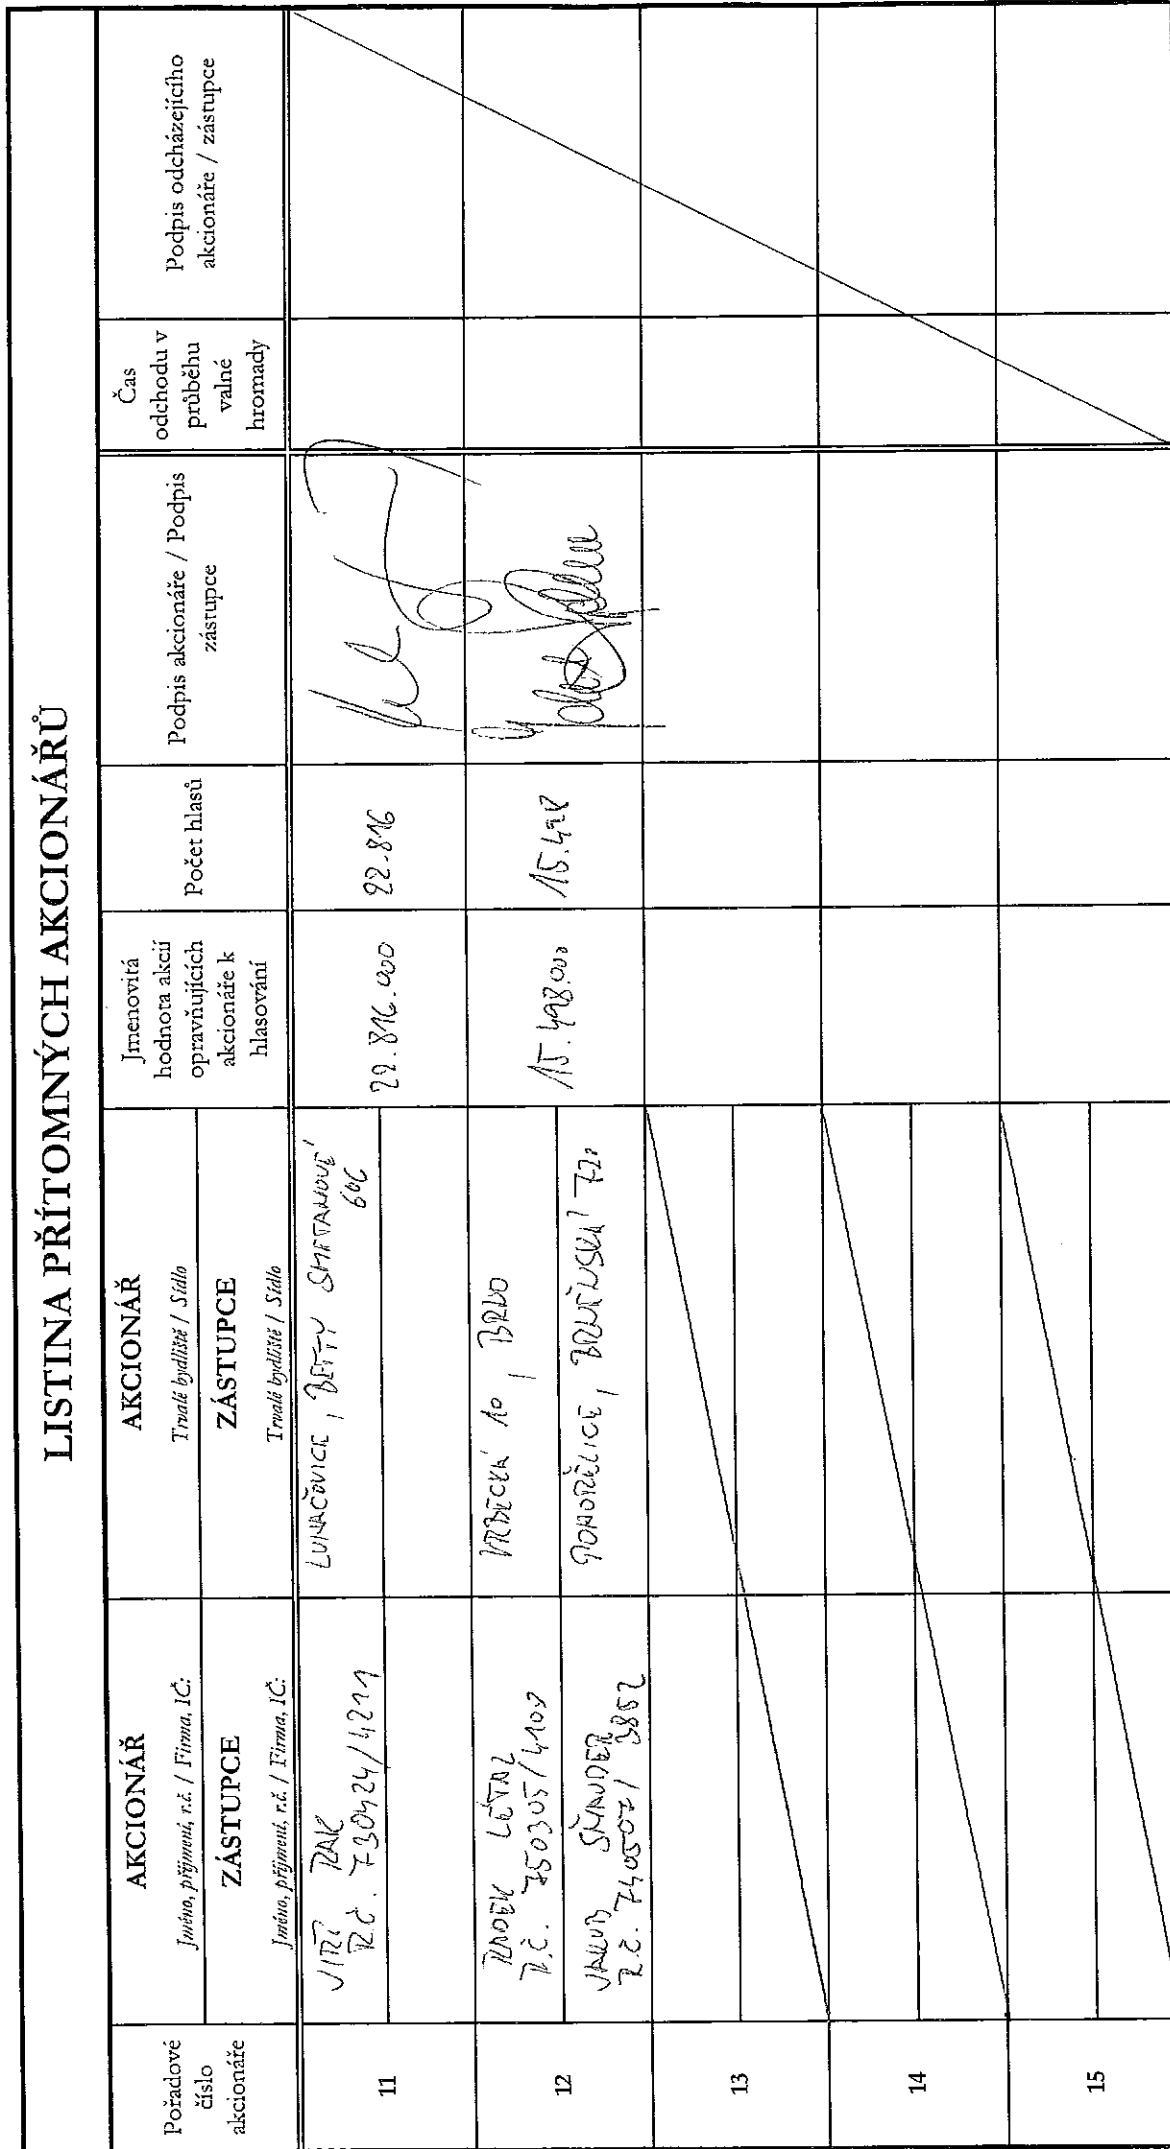 LISTINA PŘÍTOMNÝCH AKCIONÁŘŮ
Pořadové
číslo
akcionáře
AKCIONÁŘ
Jméno, příjmení, r.č. / Firma, IČ:
ZÁSTUPCE
Jméno, příjmení, r.č. / Firma, IČ:
AKCIONÁŘ
Trvalé bydliště / Sídlo
ZÁSTUPCE
Trvalé bydliště / Sídlo
Jmenovitá
hodnota akcií
opravňujících
akcionáře k
hlasování
Počet hlasů
Podpis akcionáře / Podpis
zástupce
Čas
odchodu v
průběhu
valné
hromady
Podpis odcházejícího
akcionáře / zástupce
11
JIŘÍ RAK
R.Č. 730424/4211
LUHAČOVICE, BETTY SMETANOVÉ
606
22.816.000
22.816
12
RADEK LÉTAL
R.Č. 750305/4109
VRBECKÁ 10, BRNO
JAKUB SMAUDER
R.Č. 740507/3852
POHOŘELICE, BRNĚNSKÁ 720
15.498.000
15.498
13
14
15